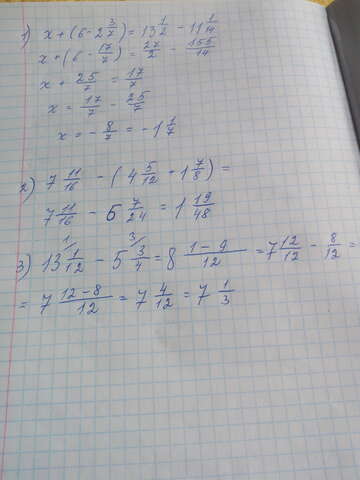 1) x + (6 - 2 3/7) = 13 1/2 - 11 1/14
x + (6 - 17/7) = 27/2 - 155/14
x + 25/7 = 17/7
x = 17/7 - 25/7
x = - 8/7 = -1 1/7
2) 7 11/16 - (4 5/12 + 1 7/8) =
7 11/16 - 6 7/24 = 1 19/48
3) 13 1/12 - 5 3/4 = 8 1-9/12 = 7 12/12 - 8/12 =
= 7 12-8/12 = 7 4/12 = 7 1/3